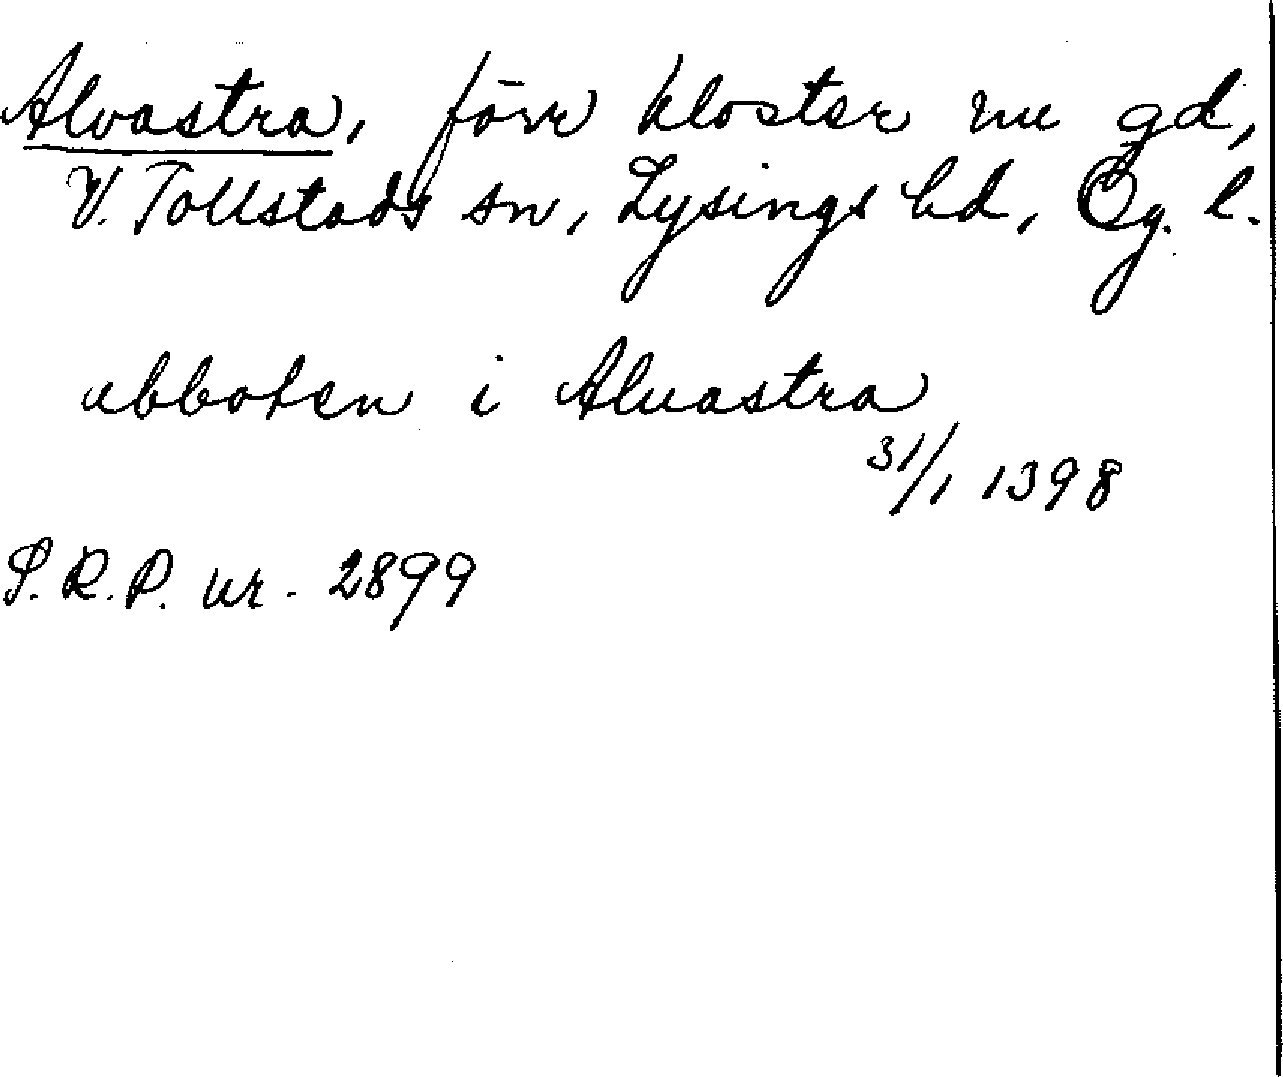 Alvastra, förr kloster nu gd,
V. Tollstads sn, Lysings hd, Ög. l.
abboten i Aluastra
31/1 1398
S.R.P. nr. 2899